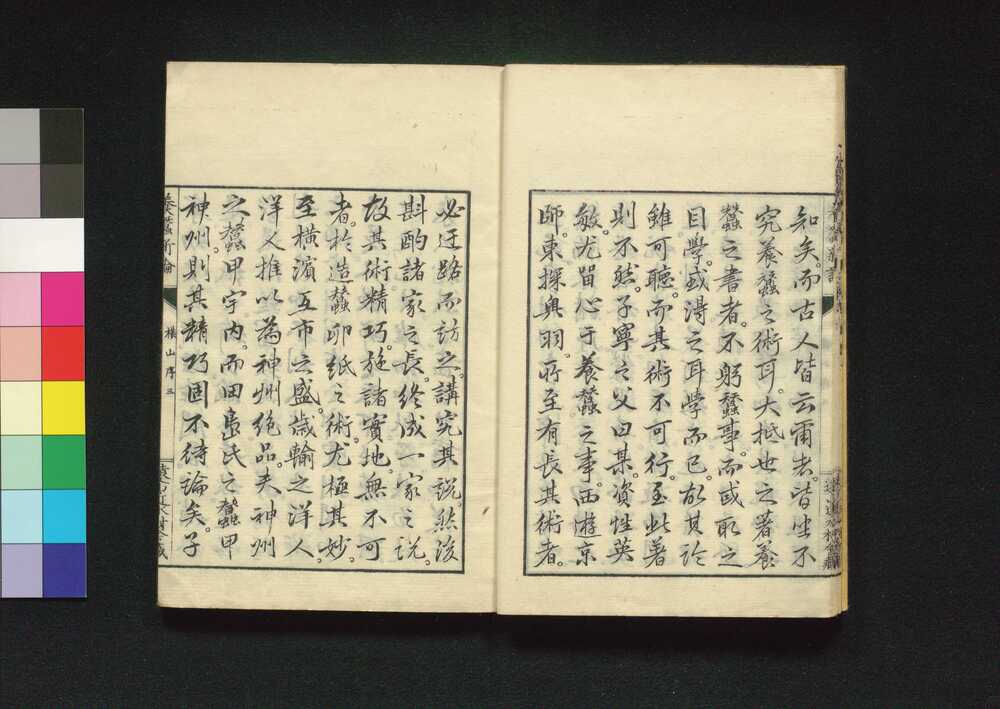 知矣。而古人皆云爾者。皆坐不
究養蠶之術耳。大抵世之著養
蠶之書者。不躬蠶事。而或取之
目學。或得之耳學而已。故其論
雖可聽。而其術不可行。至此著
則不然。子寧之父曰某。資性英
敏。尤留心于養蠶之事。西遊京
師。東探奥羽。所至有長其術者。
必迂路而訪之。講究其說。然後
斟酌諸家之長。終成一家之說。
故其術精巧。施諸實地。無不可
者。於造蠶卵紙之術。尤極其妙。
至橫濱互市之盛。歲輸之洋人。
洋人推以為神州絶品。夫神州
之蠶甲宇內。而田島氏之蠶甲
神州。則其精巧固不待論矣。子
養蠶新論
橫山序三